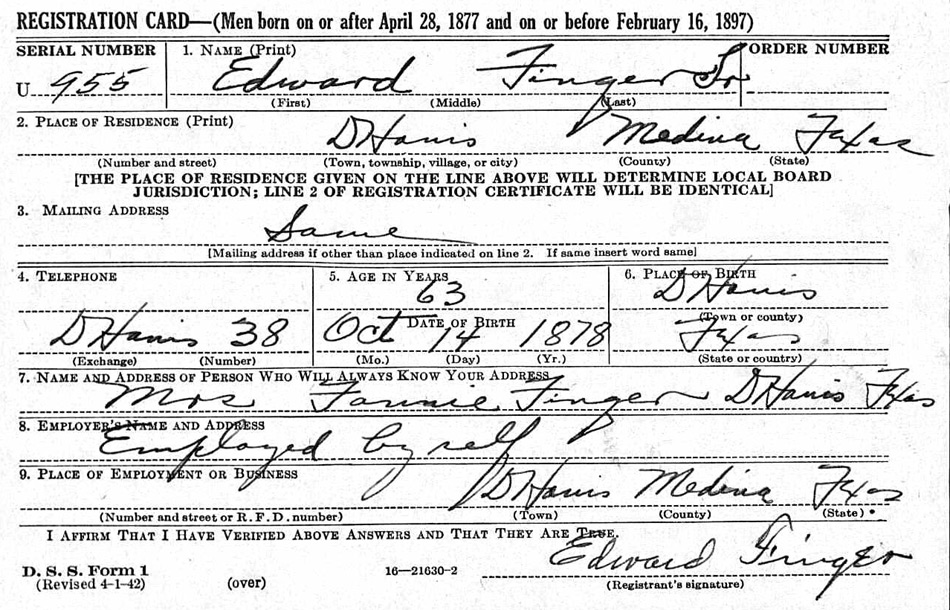 REGISTRATION CARD—(Men born on or after April 28, 1877 and on or before February 16, 1897)
SERIAL NUMBER 1. NAME (Print) ORDER NUMBER
U 955 Edward Finger Sr
(First) (Middle) (Last)
2. PLACE OF RESIDENCE (Print)
D'Hanis Medina Texas
(Number and street) (Town, township, village, or city) (County) (State)
[THE PLACE OF RESIDENCE GIVEN ON THE LINE ABOVE WILL DETERMINE LOCAL BOARD
JURISDICTION; LINE 2 OF REGISTRATION CERTIFICATE WILL BE IDENTICAL]
3. MAILING ADDRESS
Same
[Mailing address if other than place indicated on line 2. If same insert word same]
4. TELEPHONE 5. AGE IN YEARS 6. PLACE OF BIRTH
63 D'Hanis
DATE OF BIRTH (Town or county)
D'Hanis 38 Oct 14 1878 Texas
(Exchange) (Number) (Mo.) (Day) (Yr.) (State or country)
7. NAME AND ADDRESS OF PERSON WHO WILL ALWAYS KNOW YOUR ADDRESS
Mrs Fannie Finger D'Hanis Texas
8. EMPLOYER'S NAME AND ADDRESS
Employed by self
9. PLACE OF EMPLOYMENT OR BUSINESS
D'Hanis Medina Texas
(Number and street or R. F. D. number) (Town) (County) (State)
I AFFIRM THAT I HAVE VERIFIED ABOVE ANSWERS AND THAT THEY ARE TRUE.
Edward Finger
D. S. S. Form 1
(Revised 4-1-42) (over) 16—21630-2 (Registrant's signature)